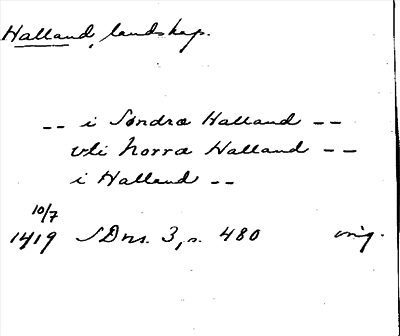 Halland, landskap.
-- i Søndra Halland --
i Norra Halland --
i Halland --
10/7
1419 SDns. 3, s. 480 orig.